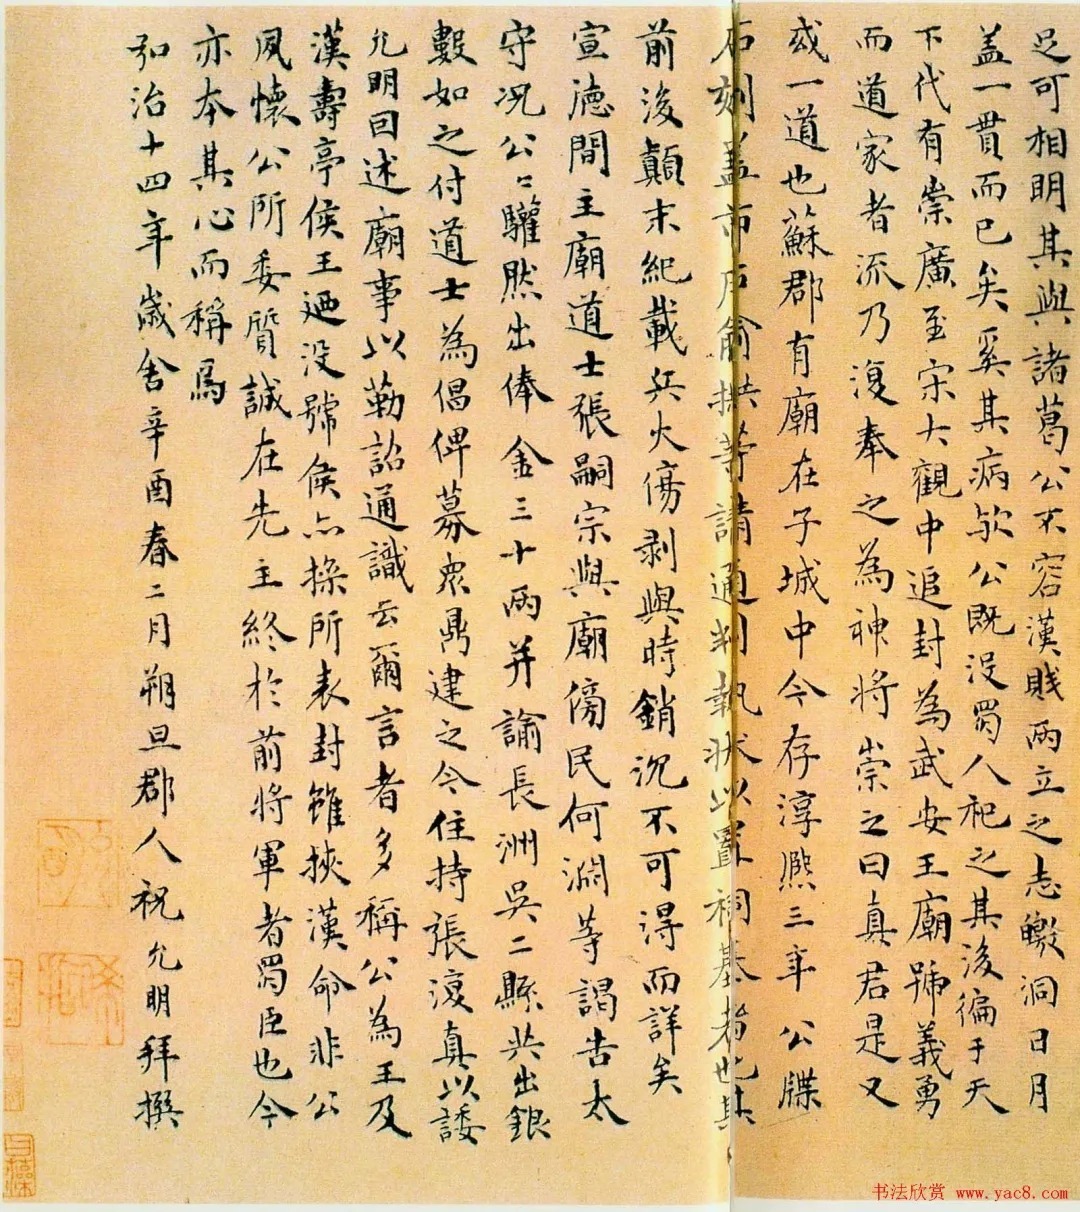 足可相明其與諸葛公不容漢賊兩立之志皦洞日月
盖一貫而已矣奚其病歟公既没蜀人祀之其後徧于天
下代有崇廣至宋大觀中追封為武安王廟號義勇
而道家者流乃復奉之為神將崇之曰真君是又
或一道也蘇郡有廟在子城中今存淳熈三年公牒
石刻盖市戶俞拱等請通判執狀以置祠基者也其
前後顛末紀載兵火傷剥與時銷沉不可得而詳矣
宣德間主廟道士張嗣宗與廟傍民何渊等謁告太
守况公公驩然出俸金三十兩并諭長洲吳二縣共出銀
數如之付道士為倡俾募衆鼎建之今住持張復真以諉
允明回述廟事以勒詔通識云爾言者多稱公為王及
漢壽亭侯王迺没號侯亦操所表封雖挾漢命非公
夙懷公所委質誠在先主終於前將軍者蜀臣也今
亦本其心而稱焉
弘治十四年歲舍辛酉春二月朔旦郡人祝允明拜撰
书法欣赏 www.yac8.com